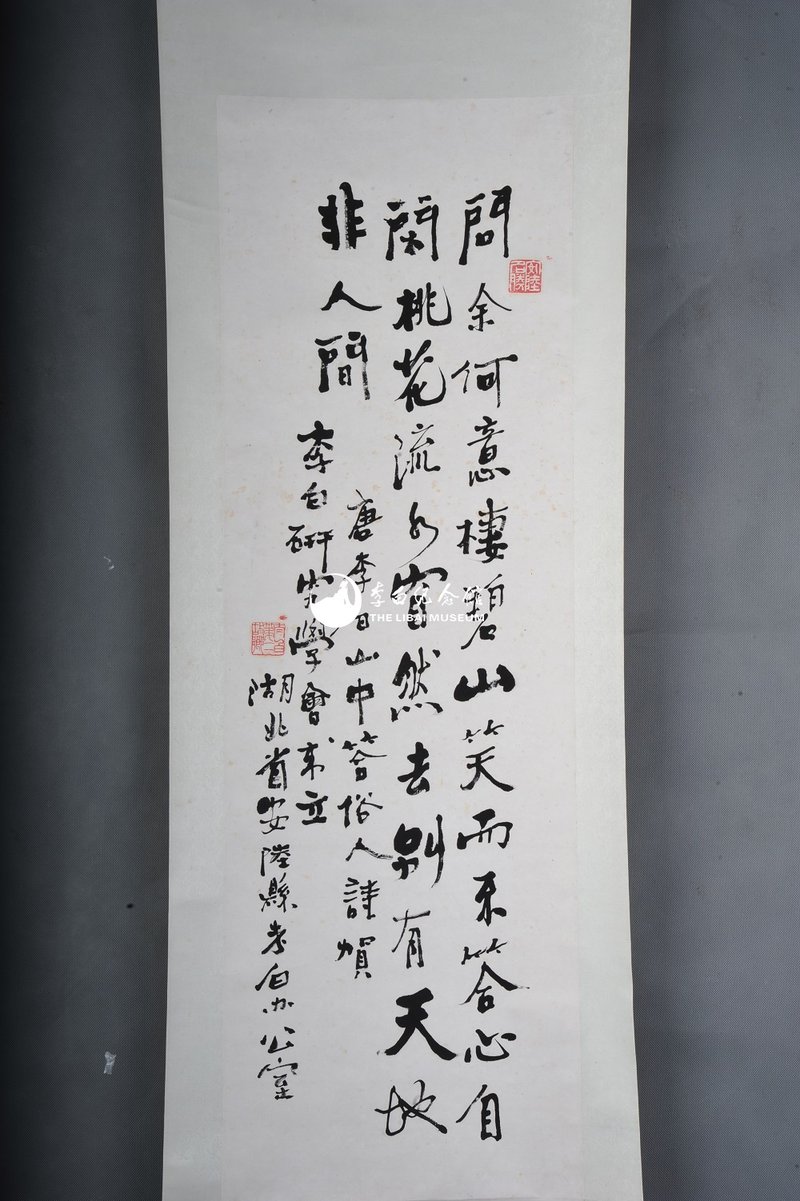 問余何意棲碧山笑而不答心自
閑桃花流水窅然去別有天地
非人間
唐李白山中答俗人謹賀
李白研究學會成立
湖北省安陸縣李白办公室
安陸
名勝
李白紀念館
THE LIBAI MUSEUM